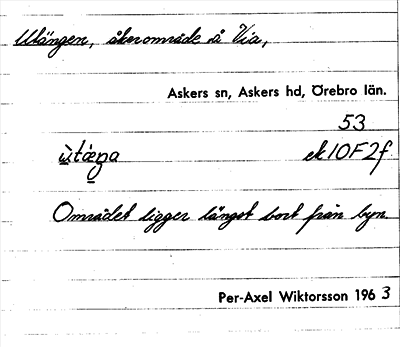 Utängen, åkerområde å Via,
Askers sn, Askers hd, Örebro län.
53
ùtæŋa ek 10F2f
Området ligger längst bort från byn.
Per-Axel Wiktorsson 1963